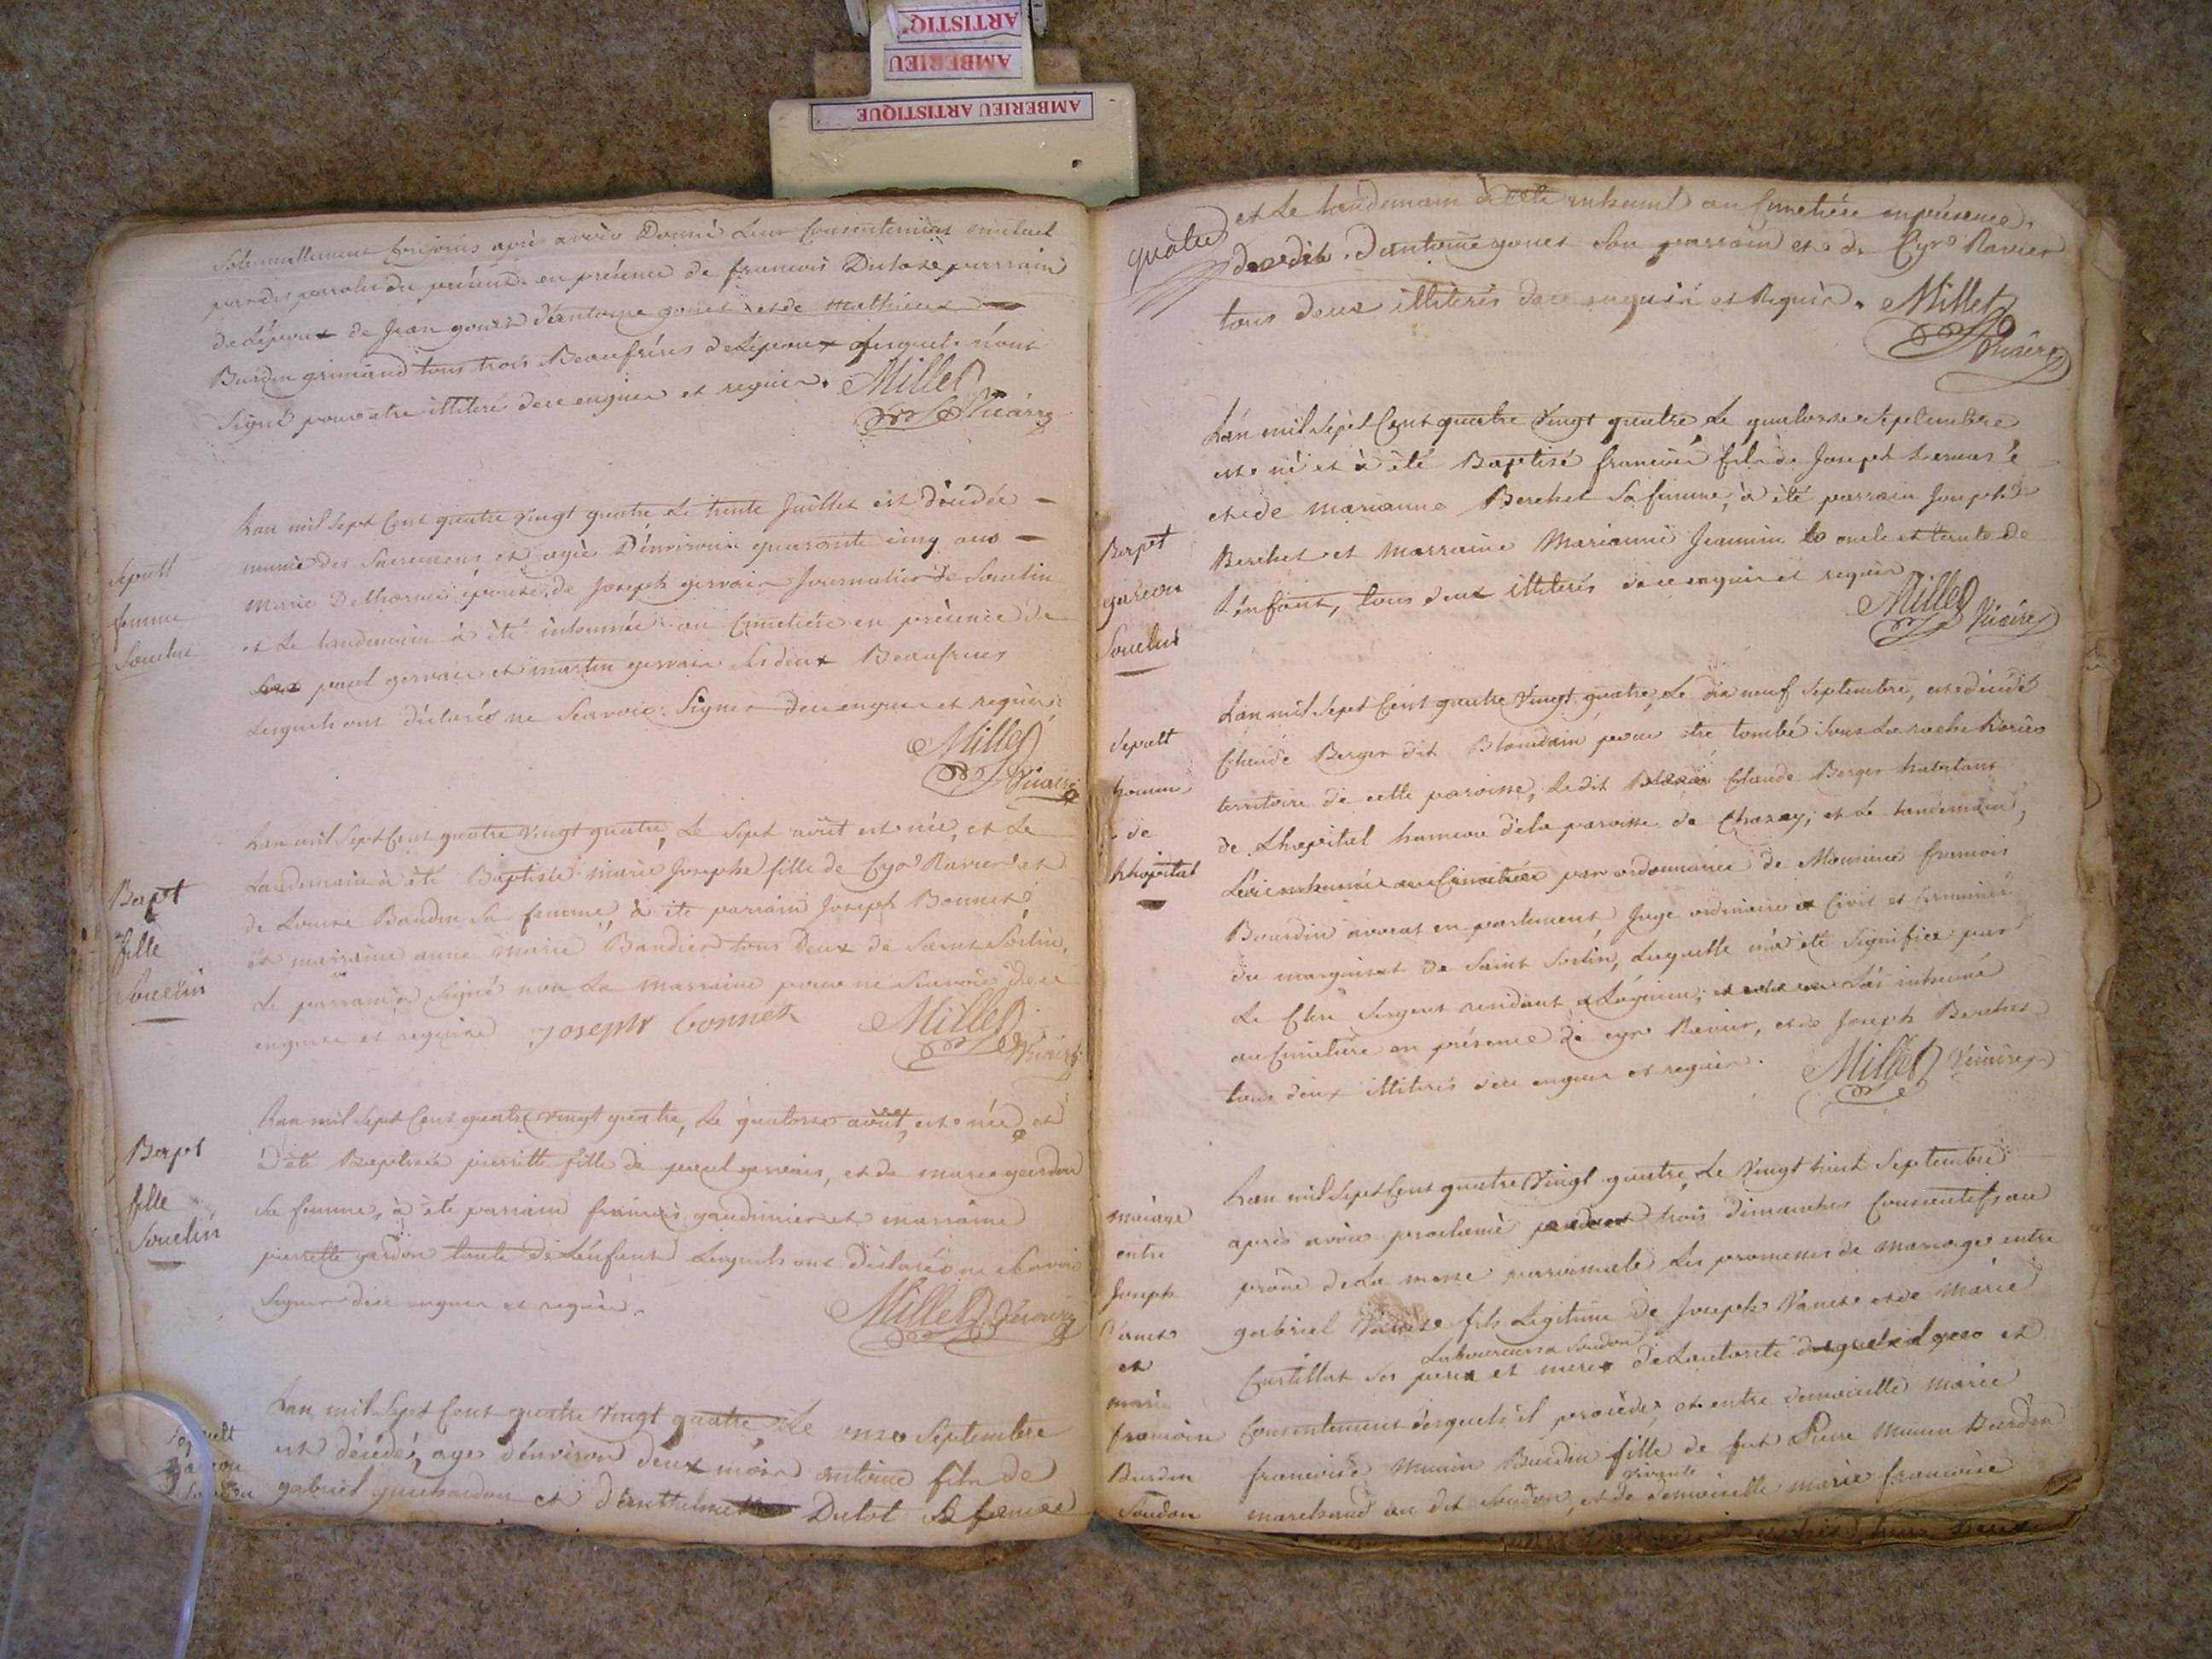 ARTISTIQ
AMBERIEU
AMBERIEU ARTISTIQUE
Solemnellement Conjoins après avoir Donné Leur Consentement mutuel
par des paroles du présent en présence de francois Dutote parrain
de Lépoux de Jean gonet d'antoine gonet et de mathieux
Burdin grimand tous trois Beaufréres de Lépoux lesquels n'ont
Signé pour être illiteré de ce enquis et requis. Millet
Vicaire
Sepult
femme
Souclin
Lan mil Sept Cent quatre vingt quatre Le trente Juillet est décédée
munie des Sacremens et agée D'environ quarante cinq ans
Marie Delhorme épouse de Joseph gervais Journalier de Souclin
et Le landemain à été inhumée au Cimetière en présence de
paul gervais et martin gervais Ses deux Beaufreres
Lesquels ont déclarés ne Scavoir Signer de ce enquis et requis
Millet
Vicaire
Bapt
fille
Souclin
Lan mil Sept Cent quatre vingt quatre, Le Sept août est née, et Le
Landemain à été Baptisée marie Josephe fille de Cyr Ravier et
de Louise Baudin Sa femme, à été parrain Joseph Bonnet
et marraine anne marie Baudier tous Deux de Saint Sorlin,
Le parrain a Signé non La marraine pour ne Scavoir de ce
enquise et requise Joseph bonnet Millet
Vicaire
Bapt
fille
Souclin
Lan mil Sept Cent quatre vingt quatre, Le quatorze août, est née, et
à été Baptisée pierrette fille de paul gervais, et de marie gardon
Sa femme, à été parrain francois gaudinier et marraine
pierrette gardon tante de L'énfant Lesquels ont déclarés ne Scavoir
Signer de ce enquis et requis. Millet Vicaire
Sepult
garcon
Lan mil Sept Cent quatre vingt quatre, Le onze Septembre
est décédé, age d'énviron deux mois antoine fils de
gabriel guichardon et d'énthelmette Dutot Sa femme
quatre
et Le landemain à été inhumé au Cimetière en présence
d'antoine gonet Son parrain et de Cyr Ravier
tous deux illiterés de ce enquis et Requis. Millet
Vicaire
Bapt
garcon
Souclin
Lán mil Sépt Cent quatre vingt quatre Le quatorze Septembre
est né et à été Baptisé francois fils de Joseph
et de marianne Berchet Sa femme, à été parrain Joseph
Berchet et marraine Marianne Jeannin oncle et tante de
L'énfant, tous deux illiterés de ce enquis et requis
Millet Vicaire
Sepult
homme
de
Lhôpital
Lán mil Sept Cent quatre vingt quatre, Le dix neuf Septembre, est décédé
Claude Berger dit Blondain pour être tombé Sous La roche
territoire de cette paroisse, Ledit Claude Berger habitant
de Lhopital hameau dela paroisse de Chazay; et Le landemain,
par ordonnance de Monsieur francois
Bourdin avocat en parlement, Juge ordinaire Civil et Criminel
du marquisat de Saint Sorlin, Laquelle m'a été Signifiée par
Le Clerc Sergent résidant a Lágnieu; Lái inhumé
au Cimetière en présence de cyr Ravier, et de Joseph Berchet
tous deux illiterés de ce enquis et requis. Millet Vicaire
mariage
entre
Joseph
Vanet
et
marie
francoise
Burdin
Soudon
Lan mil Sept Cent quatre Vingt quatre, Le Vingt huit Septembre
après avoir proclamé pendant trois dimanches Consécutifs au
prône de La messe paroissiale Les promesses de mariage entre
gabriel Vanet fils Legitime de Joseph Vanet et de Marie
Laboureurs a Soudon
Castillat Ses pere et mere de Lautorité et
Consentement desquels il procéde, et entre demoiselle marie
francoise Burdin fille de fut Pierre Burdin
vivante
marchand au dit Soudon, et de demoiselle marie francoise